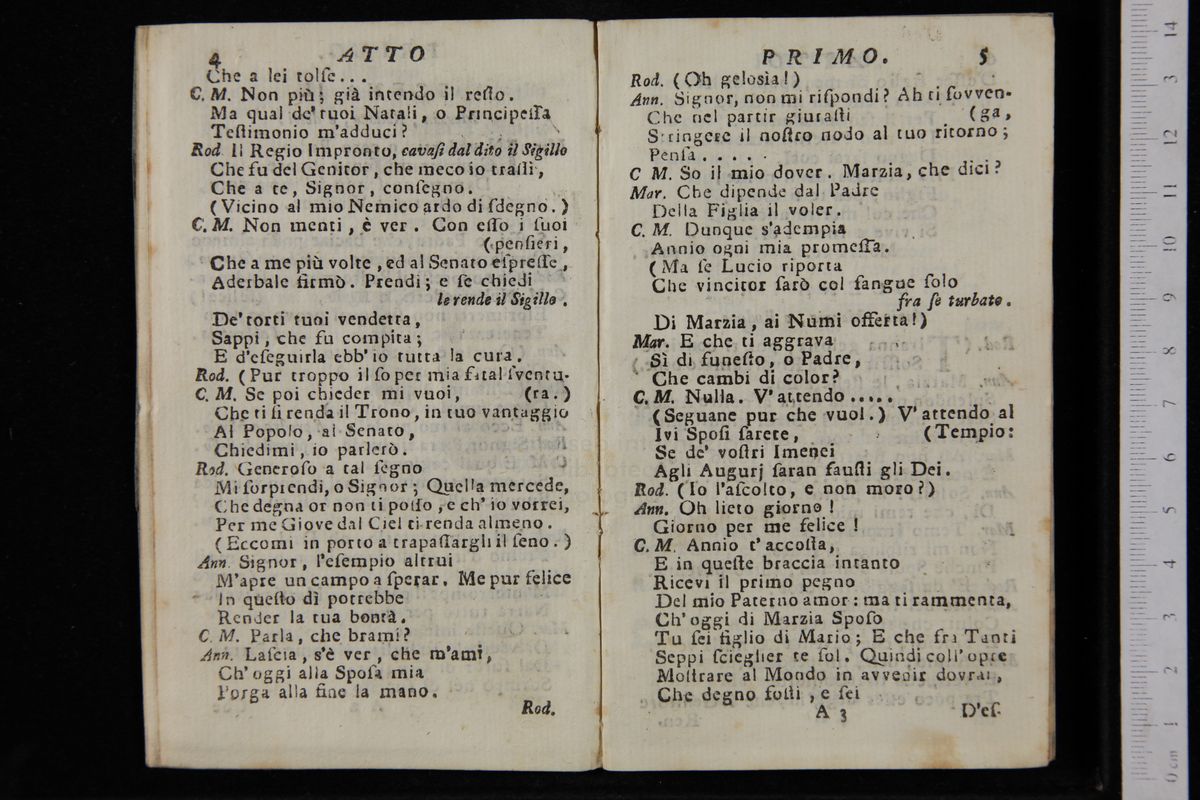 4 ATTO
Che a lei tolſe...
C. M. Non più; già intendo il reſto.
Ma qual de' tuoi Natali, o Principeſſa
Teſtimonio m'adduci?
Rod. Il Regio Impronto, cavaſi dal dito il Sigillo
Che fu del Genitor, che meco io traſſi,
Che a te, Signor, conſegno.
(Vicino al mio Nemico ardo di ſdegno.)
C. M. Non menti, è ver. Con eſſo i ſuoi
(penſieri,
Che a me più volte, ed al Senato eſpreſſe,
Aderbale firmò. Prendi; e ſe chiedi
le rende il Sigillo.
De' torti tuoi vendetta,
Sappi, che fu compita;
E d'eſeguirla ebb' io tutta la cura.
Rod. (Pur troppo il ſo per mia fatal ſventu-
C. M. Se poi chieder mi vuoi, (ra.)
Che ti ſi renda il Trono, in tuo vantaggio
Al Popolo, al Senato,
Chiedimi, io parlerò.
Rod. Generoſo a tal ſegno
Mi ſorprendi, o Signor; Quella mercede,
Che degna or non ti poſſo, e ch' io vorrei,
Per me Giove dal Ciel ti renda almeno.
(Eccomi in porto a trapaſſargli il ſeno.)
Ann. Signor, l'eſempio altrui
M'apre un campo a ſperar. Me pur felice
In queſto dì potrebbe
Render la tua bontà.
C. M. Parla, che brami?
Ann. Laſcia, s'è ver, che m'ami,
Ch' oggi alla Spoſa mia
Porga alla fine la mano.
Rod.
PRIMO. 5
Rod. (Oh geloſia!)
Ann. Signor, non mi riſpondi? Ah ti ſovven-
Che nel partir giuraſti (ga,
Stringere il noſtro nodo al tuo ritorno;
Penſa.....
C M. So il mio dover. Marzia, che dici?
Mar. Che dipende dal Padre
Della Figlia il voler.
C. M. Dunque s'adempia
Annio ogni mia promeſſa.
(Ma ſe Lucio riporta
Che vincitor ſarò col ſangue ſolo
fra ſe turbato.
Di Marzia, ai Numi offerta!)
Mar. E che ti aggrava
Sì di funeſto, o Padre,
Che cambi di color?
C. M. Nulla. V'attendo.....
(Seguane pur che vuol.) V'attendo al
Ivi Spoſi ſarete, (Tempio:
Se de' voſtri Imenei
Agli Augurj ſaran fauſti gli Dei.
Rod. (Io l'aſcolto, e non moro?)
Ann. Oh lieto giorno!
Giorno per me felice!
C. M. Annio t'accoſta,
E in queſte braccia intanto
Ricevi il primo pegno
Del mio Paterno amor: ma ti rammenta,
Ch' oggi di Marzia Spoſo
Tu ſei figlio di Mario; E che fra Tanti
Seppi ſcieglier te ſol. Quindi coll' opre
Moſtrare al Mondo in avvenir dovrai,
Che degno foſti, e ſei
A 3 D'eſ-